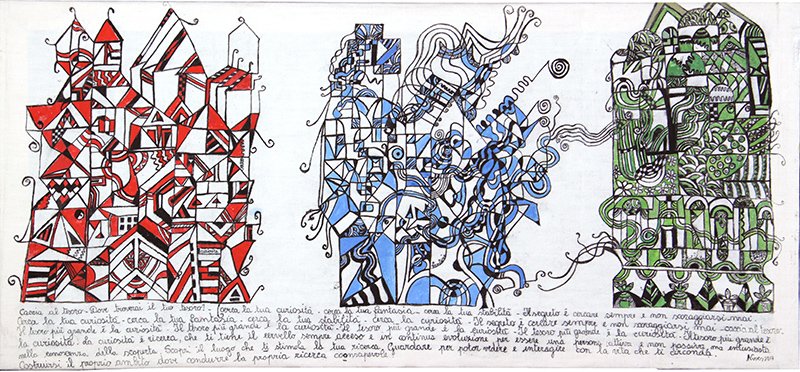 Caccia al tesoro - Dove troverai il tuo tesoro? - cerca la tua curiosità - cerca la tua fantasia - cerca la tua stabilità - Il segreto è cercare sempre e non scoraggiarsi mai
Cerca la tua curiosità - cerca la tua fantasia - cerca la tua stabilità - cerca la tua curiosità - Il segreto è cercare sempre e non scoraggiarsi mai - caccia al tesoro
Il tesoro più grande è la curiosità - Il tesoro più grande è la curiosità - Il tesoro più grande è la curiosità - Il tesoro più grande è la curiosità - Il tesoro più grande è
la curiosità - La curiosità è ricerca, che ti tiene il cervello sempre acceso e in continua evoluzione per essere una persona attiva e non passiva, ma entusiasta
nella della scoperta. Scopri il luogo che ti stimola la tua ricerca. Guardare per poter vedere e interagire con la vita che ti circonda.
Costruirsi il proprio ambito dove condurre la propria ricerca consapevole!